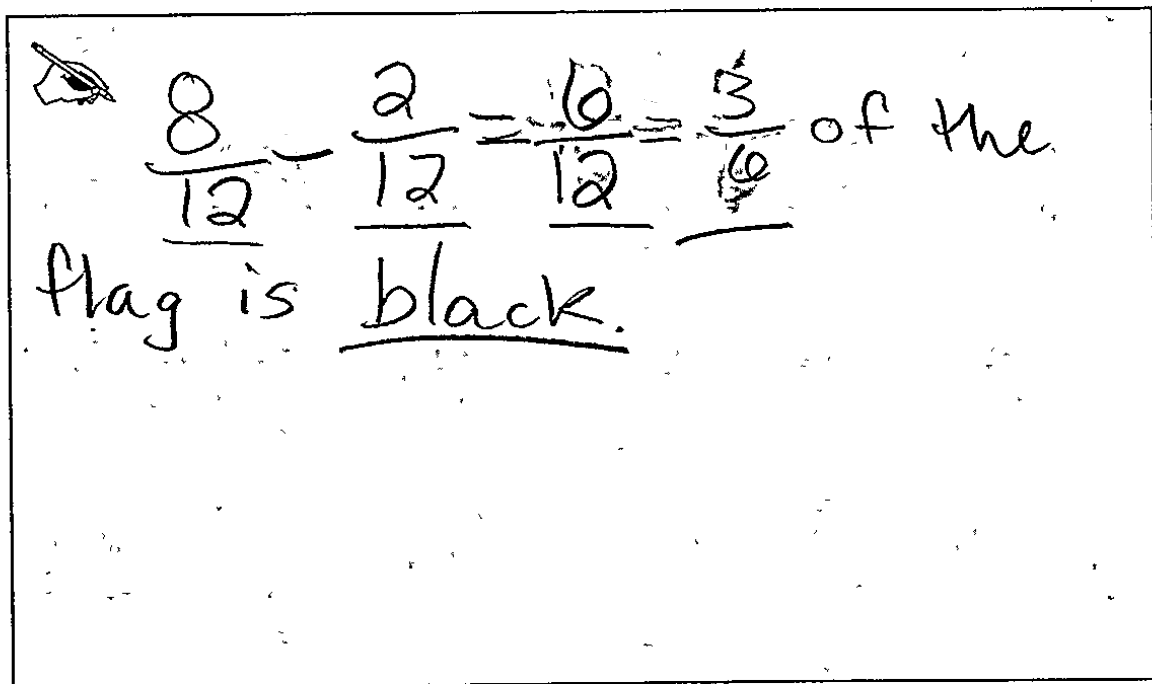 8/12 - 2/12 = 6/12 = 3/6 of the
flag is black.